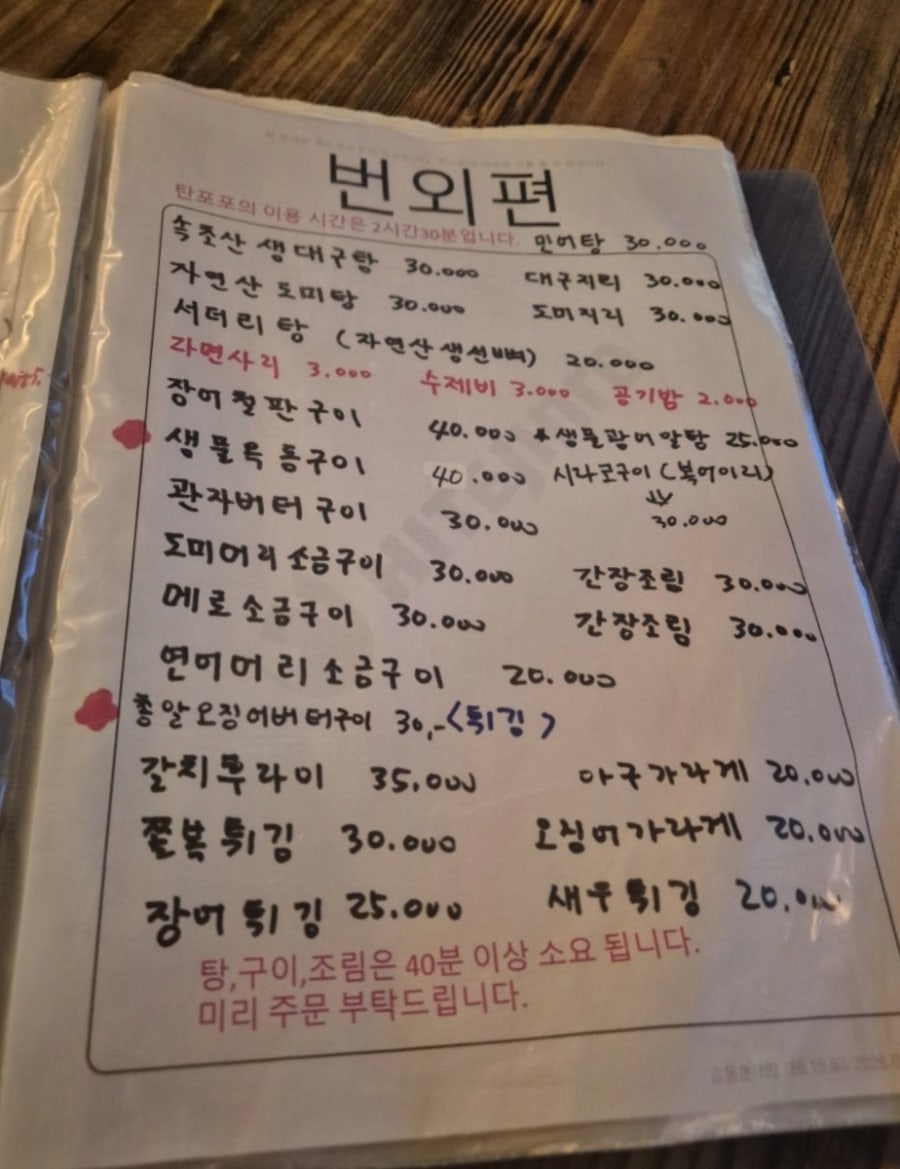 번외편
탄포포의 이용 시간은 2시간30분입니다. 민어탕 30.000
속초산 생대구탕 30.000 대구지리 30.000
자연산 도미탕 30.000 도미지리 30.000
서더리탕 (자연산생선뼈) 20.000
라면사리 3.000 수제비 3.000 공기밥 2.000
장어철판구이 40.000 * 생물광어알탕 25.000
생물옥돔구이 40.000 시라코구이(복어이리)
⇓
관자버터구이 30.000 30.000
도미머리소금구이 30.000 간장조림 30.000
메로소금구이 30.000 간장조림 30.000
연어머리소금구이 20.000
총알오징어버터구이 30,-<튀김>
갈치후라이 35,000 아구가라게 20.000
쫄복튀김 30.000 오징어가라게 20.000
장어튀김 25.000 새우튀김 20.000
탕,구이,조림은 40분 이상 소요 됩니다.
미리 주문 부탁드립니다.